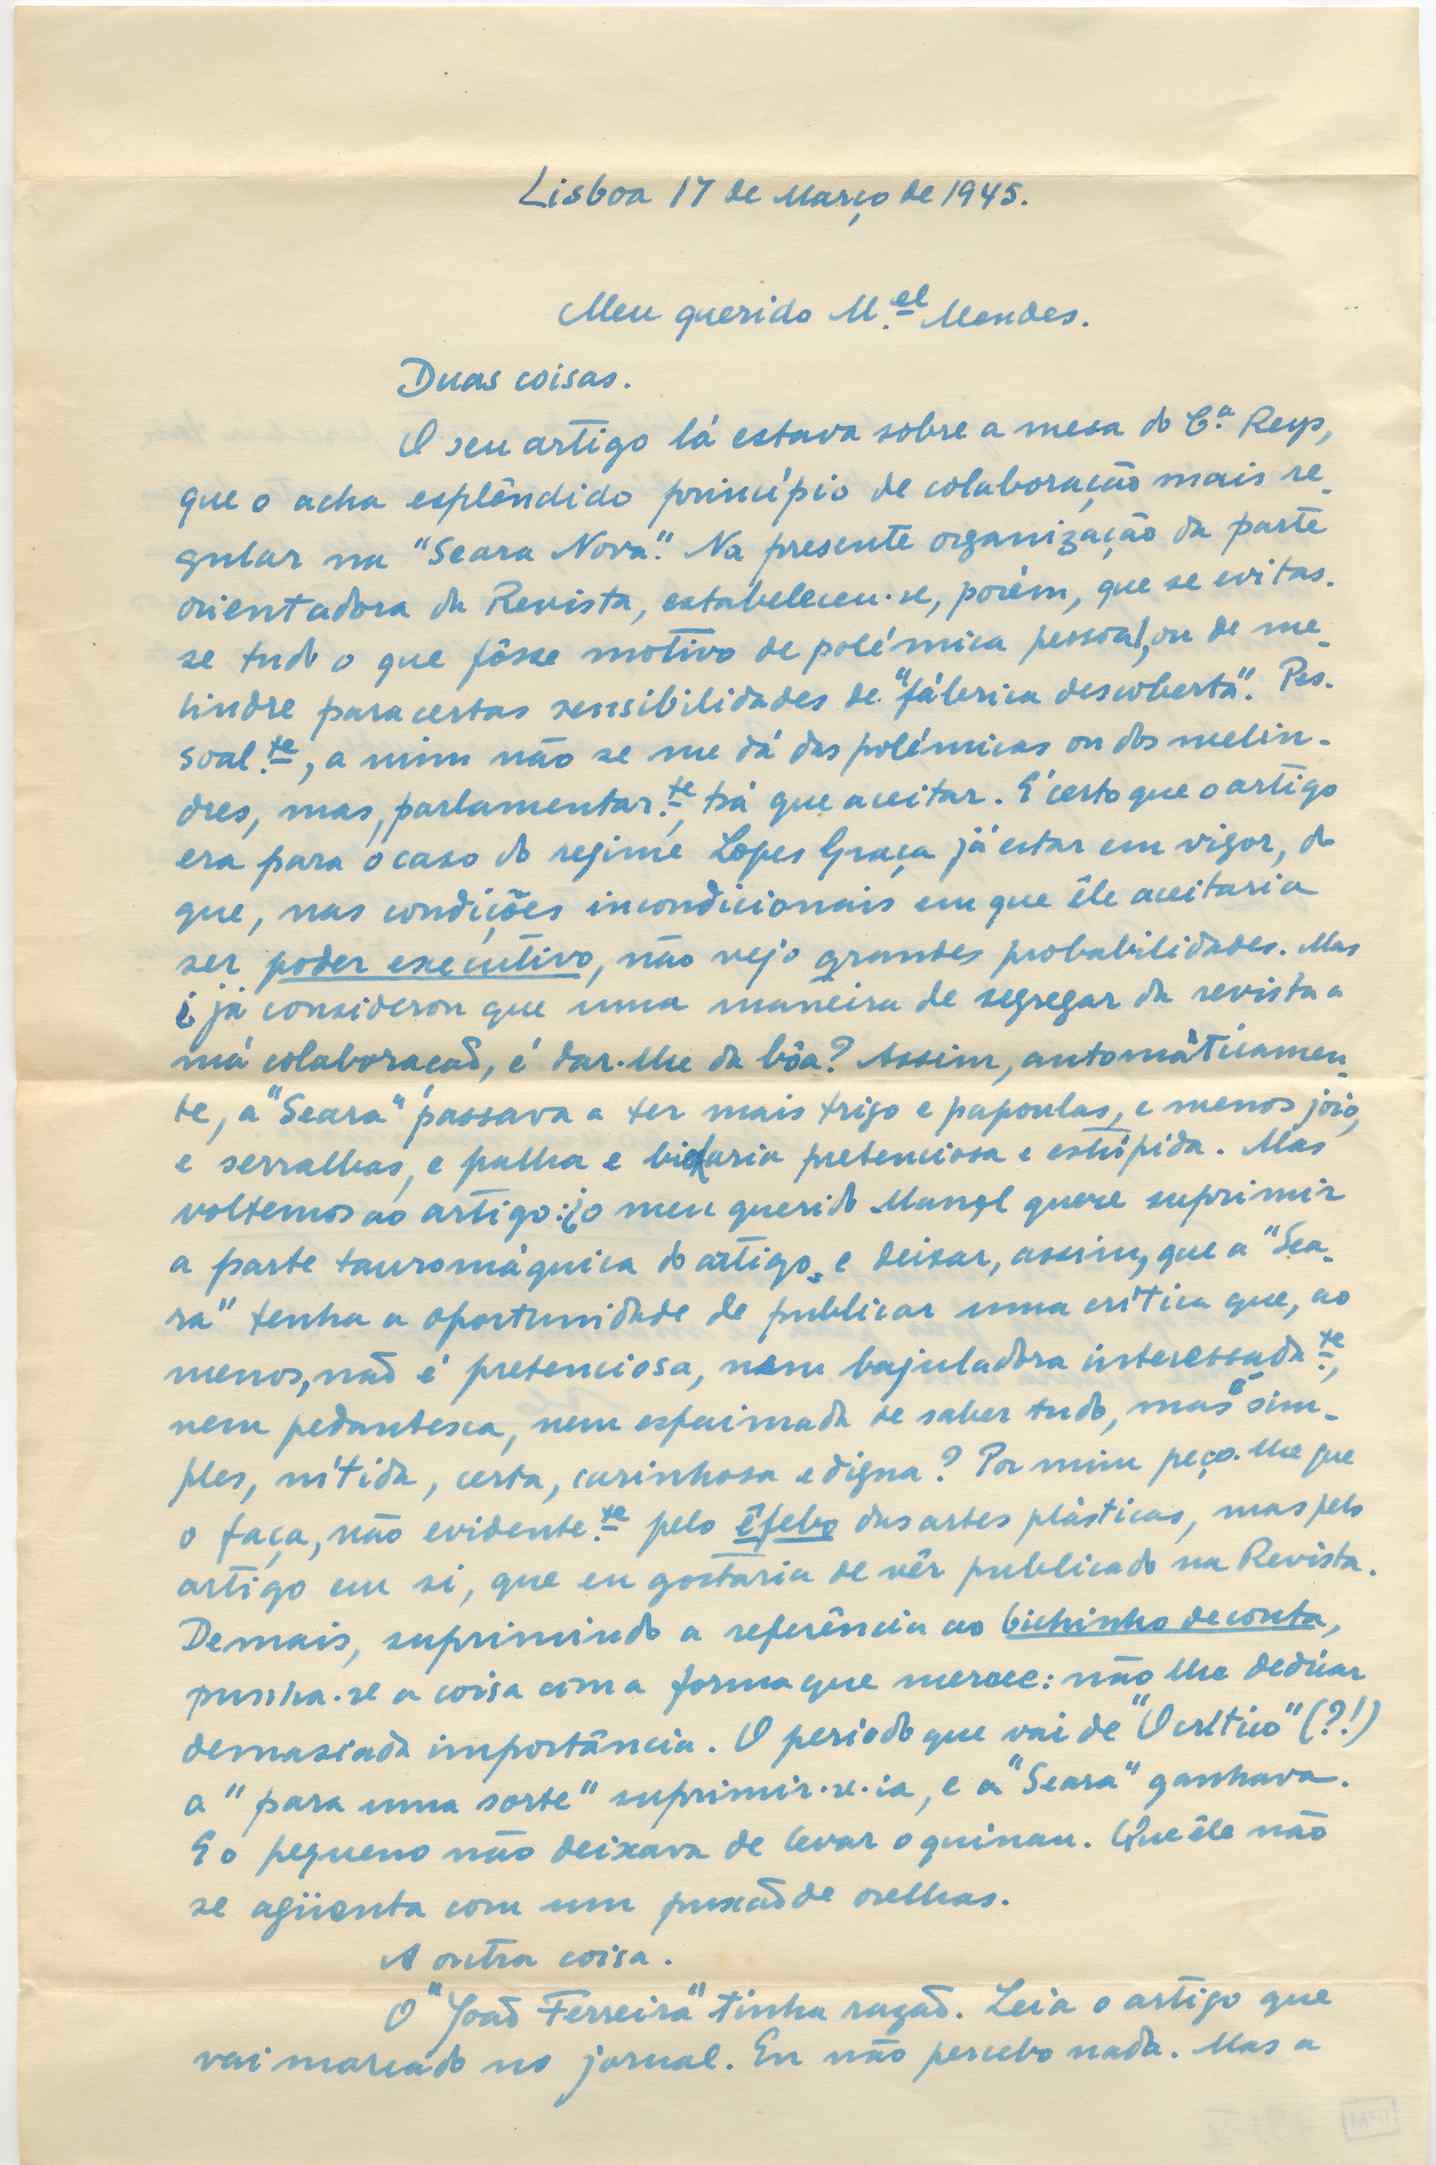 Lisboa 17 de Março de 1945.
Meu querido M.el Mendes.
Duas coisas.
O seu artigo lá estava sobre a mesa do C.ª Reys,
que o acha esplêndido princípio de colaboração mais re-
gular na "Seara Nova". Na presente organização da parte
orientadora da Revista, estabeleceu-se, porém, que se evitas-
se tudo o que fôsse motivo de polémica pessoal, ou de me-
lindre para certas sensibilidades de "fábrica descoberta". Pes-
soal.te, a mim não se me dá das polémicas ou dos melin-
dres, mas, parlamentar.te, há que aceitar. É certo que o artigo
era para o caso do regime Lopes Graça já estar em vigor, do
que, nas condições incondicionais em que êle aceitaria
ser poder executivo, não vejo grandes probabilidades. Mas
¿ já considerou que uma maneira de segregar da revista a
má colaboracaõ, é dar-lhe da bôa? Assim, automàticamen-
te, a "Seara" passava a ter mais trigo e papoulas, e menos joio,
e serralhas, e palha e pretenciosa e estúpida. Mas
voltemos ao artigo: ¿o meu querido Manel quere suprimir
a parte tauromáquica do artigo, e deixar, assim, que a "Sea-
ra" tenha a oportunidade de publicar uma crítica que, ao
menos, naõ é pretenciosa, nem bajuladora interessada.te,
nem pedantesca, nem esfaimada de saber tudo, mas é sim-
ples, nítida, certa, carinhosa e digna? Por mim peço-lhe que
o faça, não evidente.te pelo êfebo das artes plásticas, mas pelo
artigo em si, que eu gostaria de vêr publicado na Revista.
Demais, suprimindo a referência ao bichinho de conta,
punha-se a coisa com a forma que merece: não lhe dedicar
demasiada importância. O período que vai de "O crítico" (?!)
a "para uma sorte" suprimir-se-ia, e a "Seara" ganhava.
E o pequeno não deixava de levar o quinau. Que êle não
se agüenta com um puxaõ de orelhas.
A outra coisa.
O "Joaõ Ferreira" tinha razaõ. Leia o artigo que
vai marcado no jornal. Eu não percebo nada. Mas a